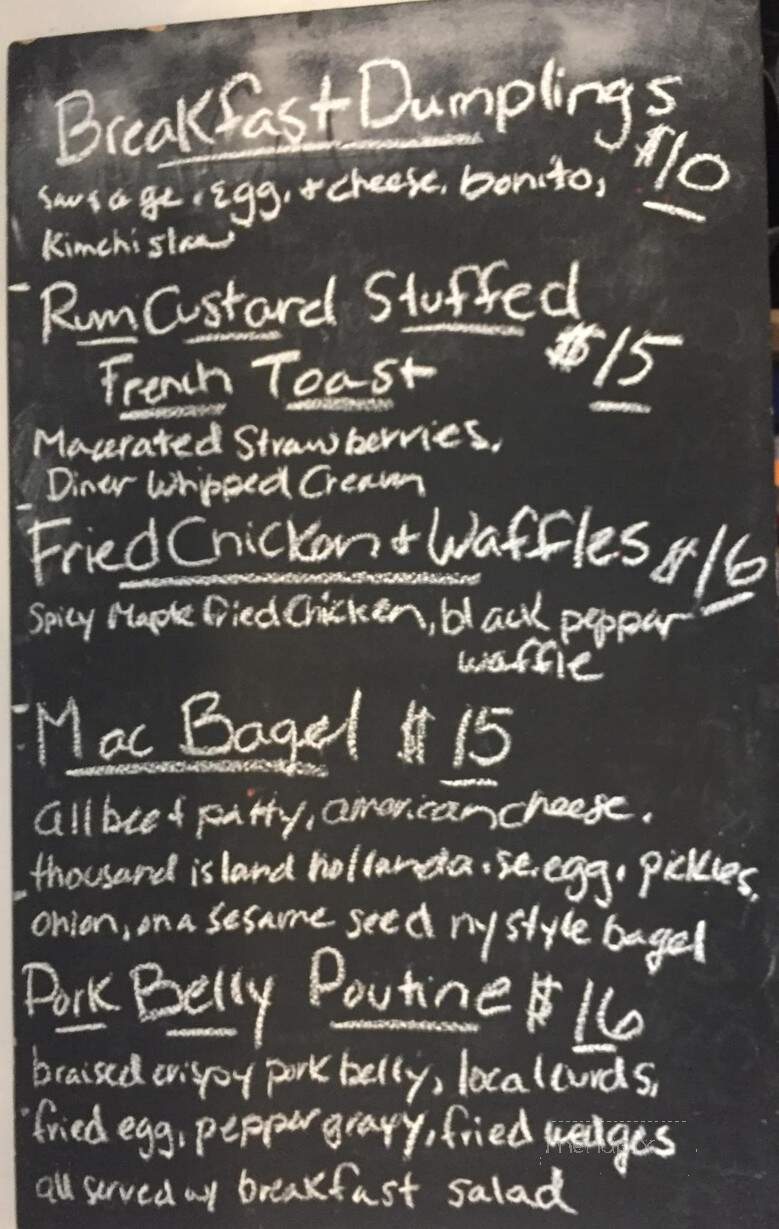 Breakfast Dumplings
$10
sausage, egg, + cheese, bonito,
Kimchi slaw
Rum Custard Stuffed
French Toast $15
Macerated Strawberries,
Diner Whipped Cream
Fried Chicken + Waffles $16
Spicy Maple Fried Chicken, black pepper
waffle
Mac Bagel $15
all beef patty, american cheese,
thousand island hollandaise, egg, pickles,
onion, on a sesame seed ny style bagel
Pork Belly Poutine $16
braised crispy pork belly, local curds,
fried egg, pepper gravy, fried wedges
all served w/ breakfast salad